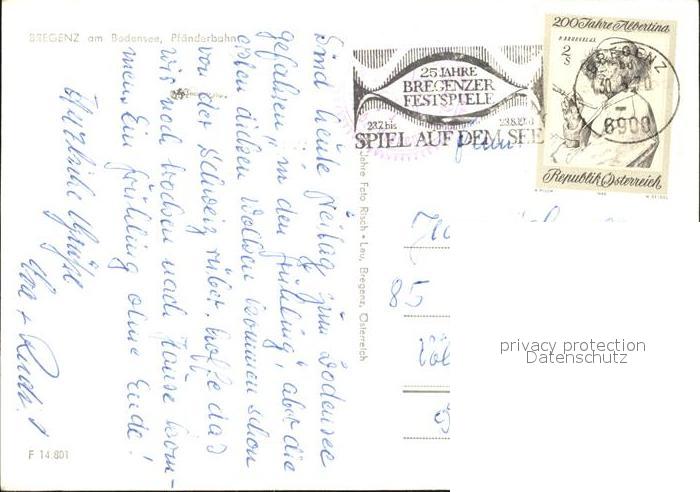 BREGENZ am Bodensee, Pfänderbahn
Sind heute Freitag zum Bodensee
gefahren "in den Frühling", aber die
ersten dicken Wolken kommen schon
von der Schweiz rüber. Hoffe das
wir noch trocken nach Hause kom-
men. Ein Frühling ohne Ende!
Herzliche Grüße
F 14.801
Foto Risch-Lau, Bregenz, Österreich
25 JAHRE
BREGENZER
FESTSPIELE
23.7. bis
SPIEL AUF DEM SEE
200 Jahre Albertina
P. P. RUBENS
2
S
Republik Österreich
BREGENZ
6900
85
privacy protection
Datenschutz